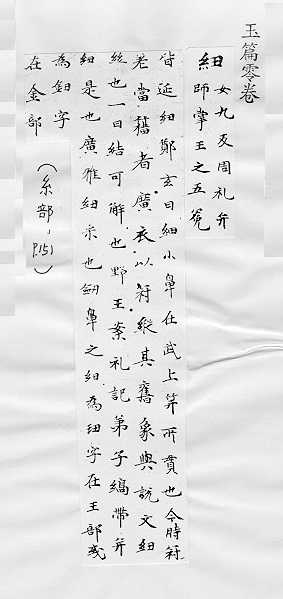 玉篇零卷
紐 女九反周礼弁
師掌王之五冕
皆延紐鄭玄曰紐小鼻在武上笄所貫也今時符
者當簪者廣衣以符縱其舊象與說文紐
絲也一曰結可解也野王案礼記弟子縞帶并
紐是也廣雅紐朿也劒鼻之紐為䥗字在王部或
為鈕字
在金部
（糸部，P.151）